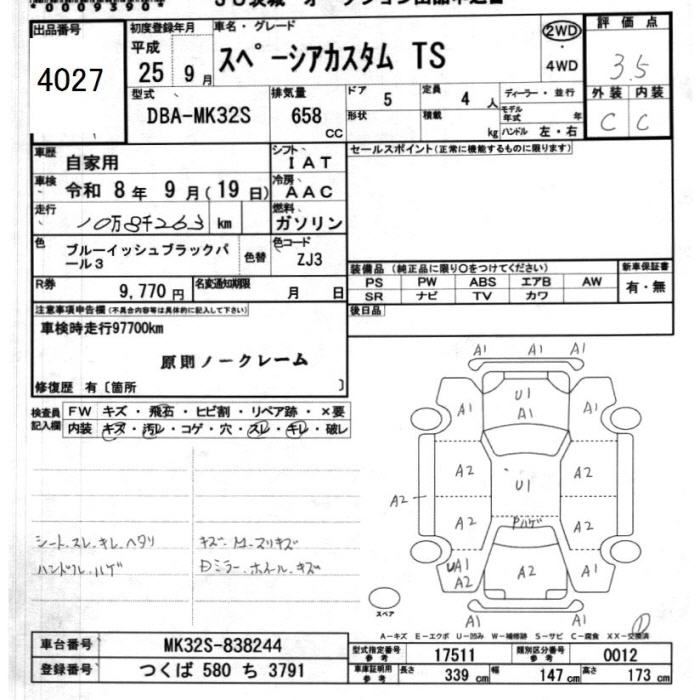 *0009390*
出品番号
4027
初度登録年月
平成
25 9月
車名・グレード
スペーシアカスタム TS
2WD
・
4WD
評価点
3.5
外装 内装
C C
型式
DBA-MK32S
排気量
658
CC
ドア 5
形状
定員 4 人
積載 kg
ディーラー・並行
モデル年式 年
ハンドル 左・右
車歴
自家用
シフト
IAT
セールスポイント(正常に機能するものに限ります)
車検
令和 8年 9月(19日)
冷房
AAC
走行
10万8千263 km
燃料
ガソリン
色
ブルーイッシュブラックパール3
色替
色コード
ZJ3
R券
9,770 円
名変通知期限
月 日
装備品 (純正品に限り○をつけてください)
新車保証書
PS PW ABS エアB AW
SR ナビ TV カワ
有・無
後日品
注意事項申告欄(不具合内容等は具体的に記入して下さい)
車検時走行97700km
原則ノークレーム
修復歴 有〔箇所 〕
検査員記入欄
FW キズ・飛石・ヒビ割・リペア跡・×要
内装 キズ・汚レ・コゲ・穴・スレ・キレ・破レ
シート.スレ.キレ.ヘタリ
ハンドル.ハゲ
キズ.
Dミラー.ホイール.キズ
A1 A1 A1
A1 U1 A1 A1
A2 U1 A2
A2
A2 Pハゲ A2
UA1 A2 A2 A1
A1 A1
スペア
①
A－キズ E－エクボ U－凹み W－補修跡 S－サビ C－腐食 XX－交換済
車台番号
MK32S-838244
登録番号
つくば 580 ち 3791
型式指定番号参考
17511
類別区分番号参考
0012
車庫証明用参考
長さ 339 cm 幅 147 cm 高さ 173 cm